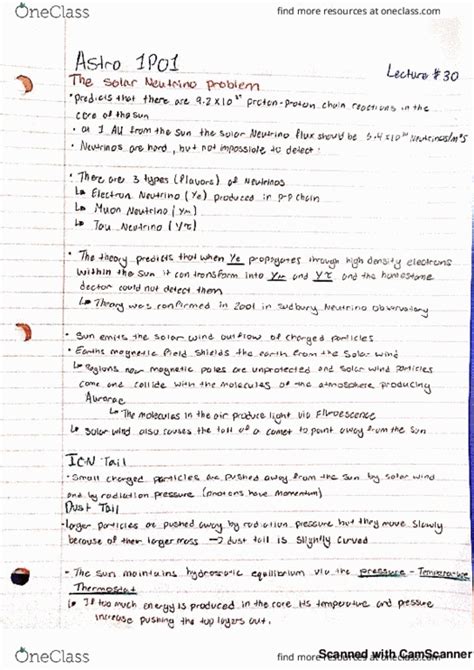 OneClass
find more resources at oneclass.com
Astro 1P01
Lecture #30
The Solar Neutrino problem
• predicts that there are 9.2 x 10³⁷ proton-proton chain reactions in the
core of the sun
• at 1 AU from the sun the solar Neutrino flux should be 5.4 x10 Neutrinos/m²s
• Neutrinos are hard, but not impossible to detect:
• There are 3 types (Flavors) of Neutrinos
↳ Electron Neutrino (Ve) produced in P-P chain
↳ Muon Neutrino (Vm)
↳ Tau Neutrino (Vτ)
• The theory predicts that when Ve propogates through high density electrons
within the sun it can transform into Vm and Vτ and the homestake
dector could not detect them
↳ Theory was confirmed in 2001 in Sudbury Neutrino Observatory
• Sun emits the solar wind outflow of charged particles
• Earths magnetic field shields the earth from the solar wind
↳ Regions near magnetic poles are unprotected and solar wind particles
come and collide with the molecules of the atmosphere producing
Aurorae
↳ The molecules in the air produce light via Fluroescence
↳ Solar wind also causes the tail of a comet to point away from the sun
ION Tail
• Small charged particles are pushed away from the sun by solar wind
and by radiation pressure (photons have momentum)
Dust Tail
• larger particles are pushed away by radiation pressure but they move slowly
because of their larger mass → dust tail is slightly curved
• The sun maintains hydrostatic equilibrium via the pressure - Temperature
Thermostat
↳ If too much energy is produced in the core its temperature and pressure
increase pushing the top layers out.
OneClass
find more resources at oneclass.com
Scanned with CamScanner